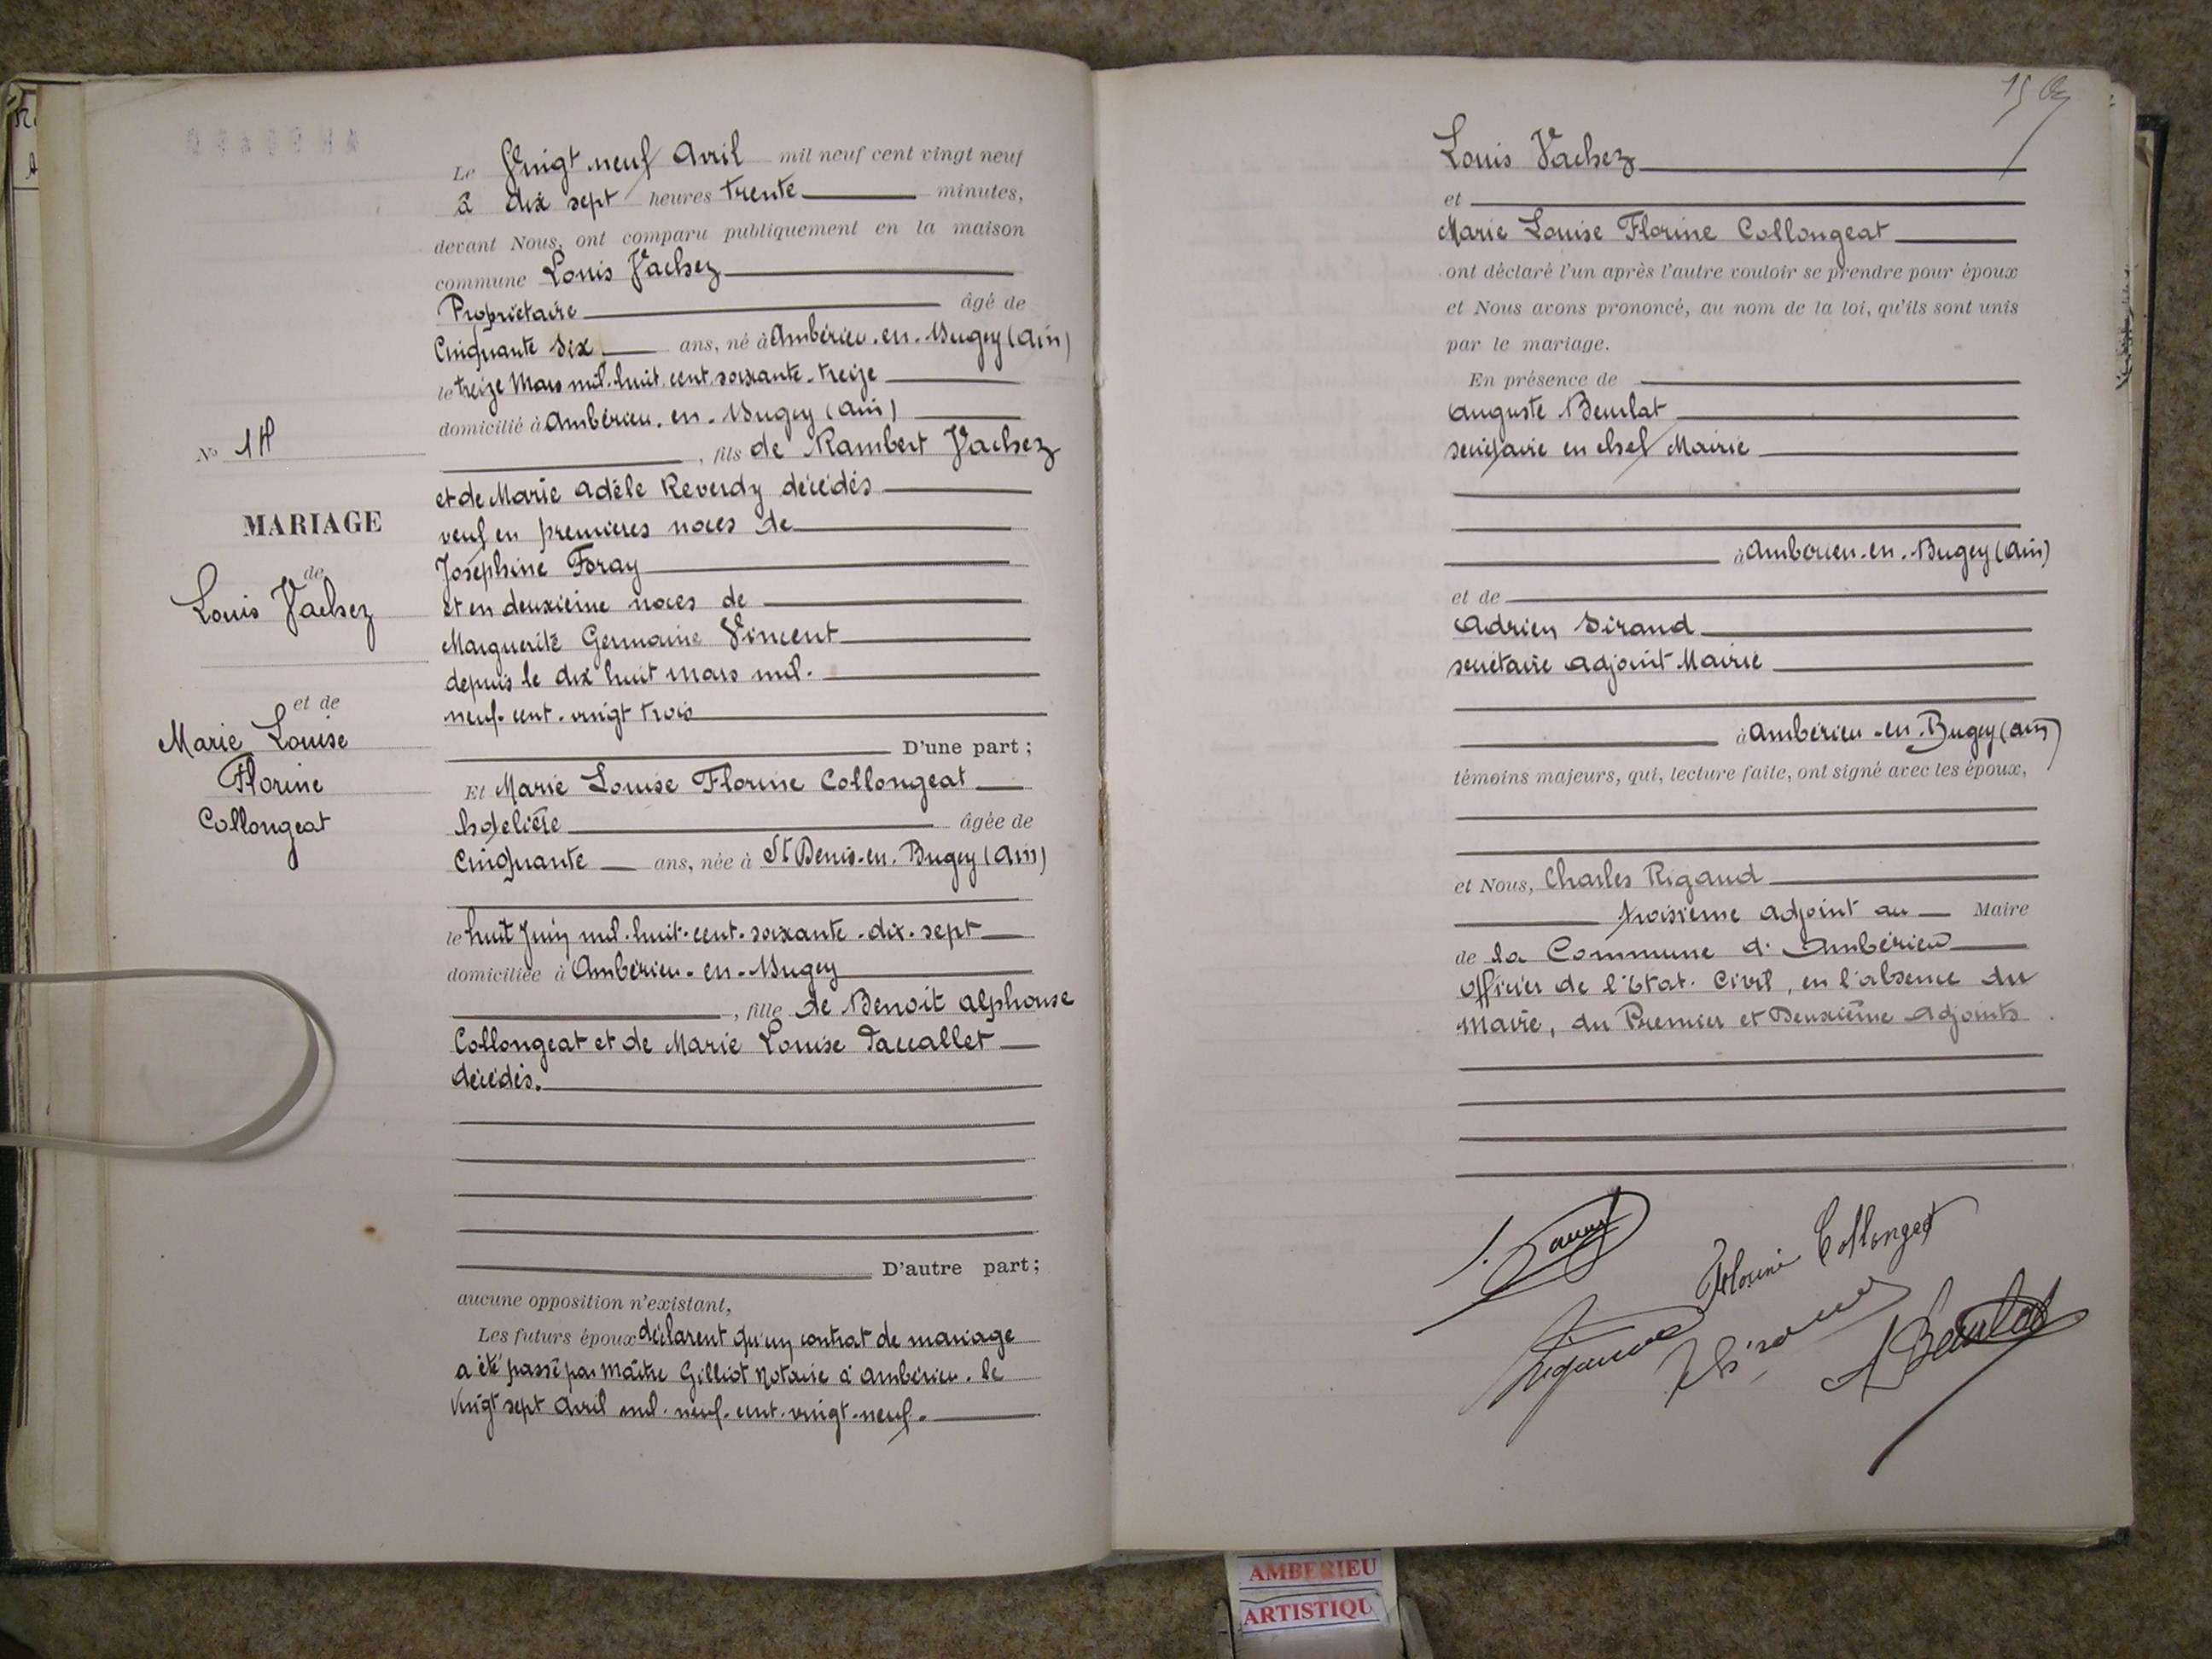 N° 14
MARIAGE
de
Louis Vachez
et de
Marie Louise
Florine
Collongeat
Le Vingt neuf Avril mil neuf cent vingt neuf
à dix sept heures trente minutes,
devant Nous, ont comparu publiquement en la maison
commune Louis Vachez
Propriétaire âgé de
Cinquante six ans, né à Ambérieu-en-Bugey (Ain)
le treize Mars mil-huit cent soixante-treize
domicilié à Ambérieu-en-Bugey (Ain)
, fils de Rambert Vachez
et de Marie Adèle Reverdy décédés
veuf en premières noces de
Joséphine Foray
et en deuxième noces de
Marguerite Germaine Vincent
depuis le dix huit mars mil-
neuf-cent-vingt trois
D'une part ;
Et Marie Louise Florine Collongeat
hotelière âgée de
Cinquante ans, née à St Denis-en-Bugey (Ain)
le huit Juin mil-huit-cent-soixante-dix-sept
domiciliée à Ambérieu-en-Bugey
, fille de Benoit Alphonse
Collongeat et de Marie Louise Paccallet
décédés.
D'autre part ;
aucune opposition n'existant,
Les futurs époux déclarent qu'un contrat de mariage
a été passé par Maître Gilliot Notaire à Ambérieu. le
Vingt sept Avril mil-neuf-cent-vingt-neuf.
15
Louis Vachez
et
Marie Louise Florine Collongeat
ont déclaré l'un après l'autre vouloir se prendre pour époux
et Nous avons prononcé, au nom de la loi, qu'ils sont unis
par le mariage.
En présence de
Auguste Beurlat
secrétaire en chef Mairie
à Ambérieu-en-Bugey (Ain)
et de
Adrien Sirand
secrétaire adjoint Mairie
à Ambérieu-en-Bugey (Ain)
témoins majeurs, qui, lecture faite, ont signé avec les époux,
et Nous, Charles Rigaud
troisième adjoint au Maire
de la Commune d'Ambérieu
Officier de l'Etat-Civil, en l'absence du
Maire, du Premier et Deuxième Adjoints
Florine Collongeat
A Beurlat
AMBERIEU
ARTISTIQU